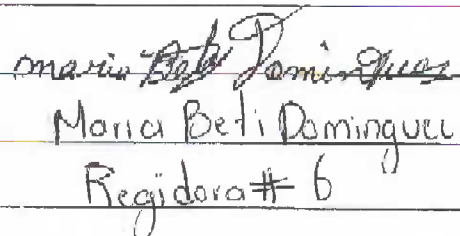 Maria Beti Dominguez
Maria Beti Dominguez
Regidora # 6